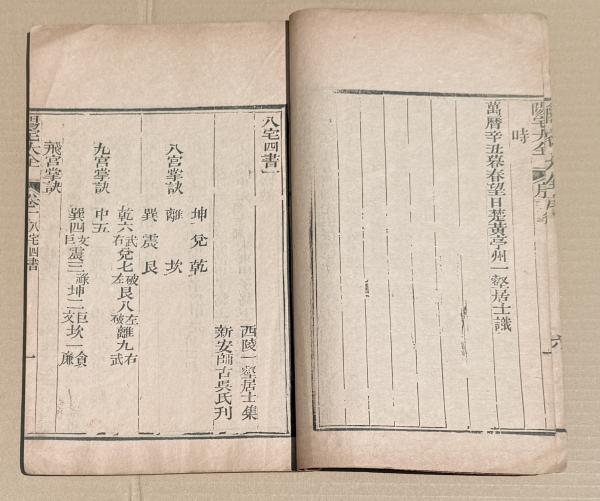 時
萬曆辛丑暮春望日楚黃亭州一壑居士識
八宅四書一
西陵一壑居士集
新安師古吳氏刊
坤兌乾
八宮掌訣 離 坎
巽震艮
九宮掌訣 乾六武右兌七破左艮八左破離九右武
中五
巽四支巨震三祿坤二巨支坎一貪廉
飛宮掌訣
陽宅大全 卷一 八宅四書 一